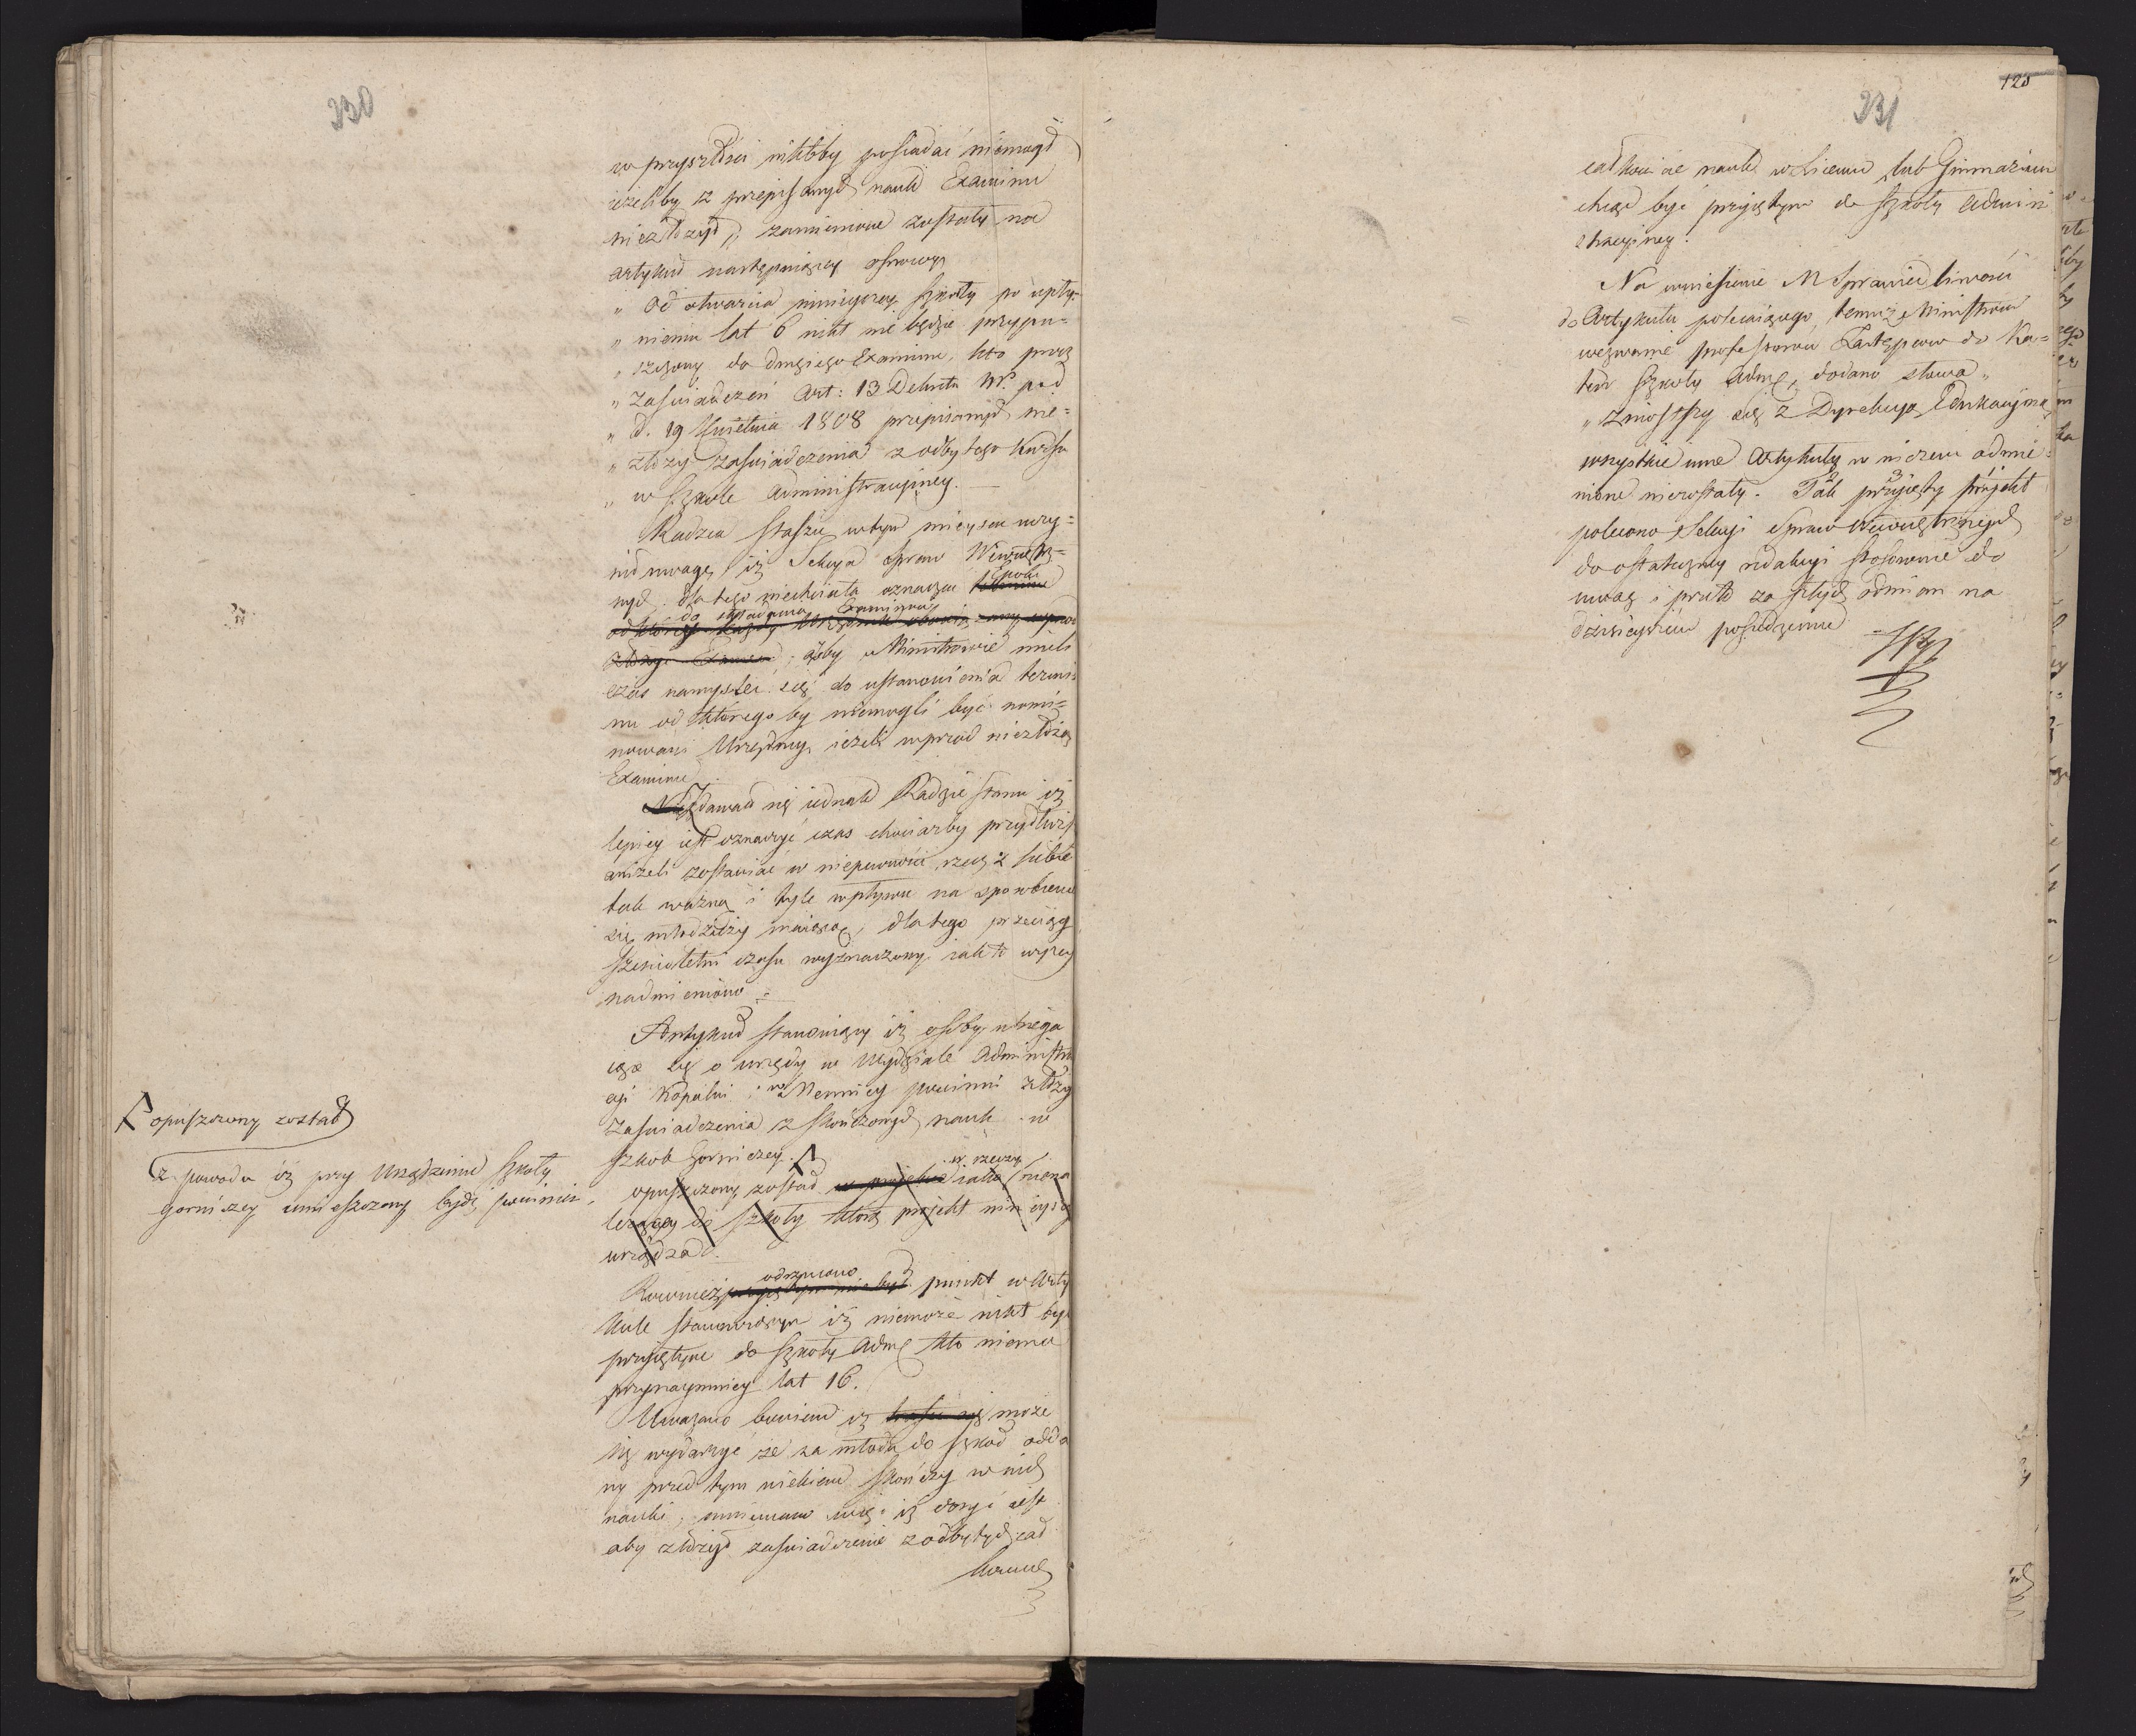 330
w przyszłości niktby posiadać niemógł
ieżeliby z przepisanych nauk Examinu
niezłożył, zamienione zostały na
artykuł następuiący osnowy
" Od otwarcia ninieyszey szkoły po upły-
" nieniu lat 6 nikt nie będzie przypu-
" szczony do drugiego Examinu, kto prócz
" Zaświadczeń Art: 13 Dekretu N. pod
" d. 19 Kwietnia 1808 przepisanych nie-
" złoży zaświadczenia z odbytego Kursu
" w Szkole Administracyiney. —
Radzca Staszic w tym mieyscu uczy-
nił uwagę, iż Sekcya Spraw Wewnętrz-
nych dla tego niechciała oznaczać terminu
Epoki
od którey każdy Urzędnik obowiązany wprzód
do składania Examinu
złożyć Examen; żeby Ministrowie mieli
czas namyślić się do ustanowienia termi-
nu od którego by niemogli być nomi-
nowani Urzędnicy ieżeli wprzód niezłożą
Examinu
Zdawało się iednak Radzie Stanu iż
lepiey iest oznaczyć czas chociażby przydłuższy
aniżeli zostawiać w niepewności rzecz z siebie
tak ważną i tyle wpływu na sposobienie
się młodzieży maiącą, dlatego przeciąg
sześcioletni czasu wyznaczony iak to wyżey
nadmieniono.
Artykuł stanowiący iż osoby ubiega
iące się o urzędy w Wydziale Administra
cyi Kopalni i w Mennicy powinni złożyć
Zaświadczenia z skończonych nauk w
Szkole Górniczey.
opuszczony został
z powodu iż przy Urządzeniu Szkoły
Górniczey umieszczony bydź powinien.
opuszczony został w projekcie iako niena
w rzeczy
leżący do szkoły którą projekt ninieyszy
urządzał.
Rownież odrzucono punkt w Arty
kule stanowiącym iż niemoże nikt być
przyiętym do Szkoły Adm kto niema
przynaymniey lat 16.
Uważano bowiem iż trafić się może
się wydarzyć że za młodu do szkół odda
ny przed tym wiekiem skończy w nich
nauki, mniemano więc iż dosyć iest
aby złożył zaświadczenie z odbytych cał
kowicie
125
331
całkowicie nauk w Liceum lub Gimnazium
chcąc być przyiętym do Szkoły Admini
stracyiney.
Na wniesienie M Sprawiedliwości
do Artykułu polecaiącego temuż Ministrowi
wezwanie professorow Zastępcow do Ka-
tedr Szkoły Adm, dodano słowa "
" Zniosłszy się z Dyrekcyą Edukacyiną
wszystkie inne Artykuły w niczem odmie-
nione niezostały. Tak przyięty projekt
polecono Sekcyi Spraw Wewnętrznych
do ostateczney redakcyi stosownie do
uwag i prócz zaszłych odmian na
dzisieyszem posiedzeniu